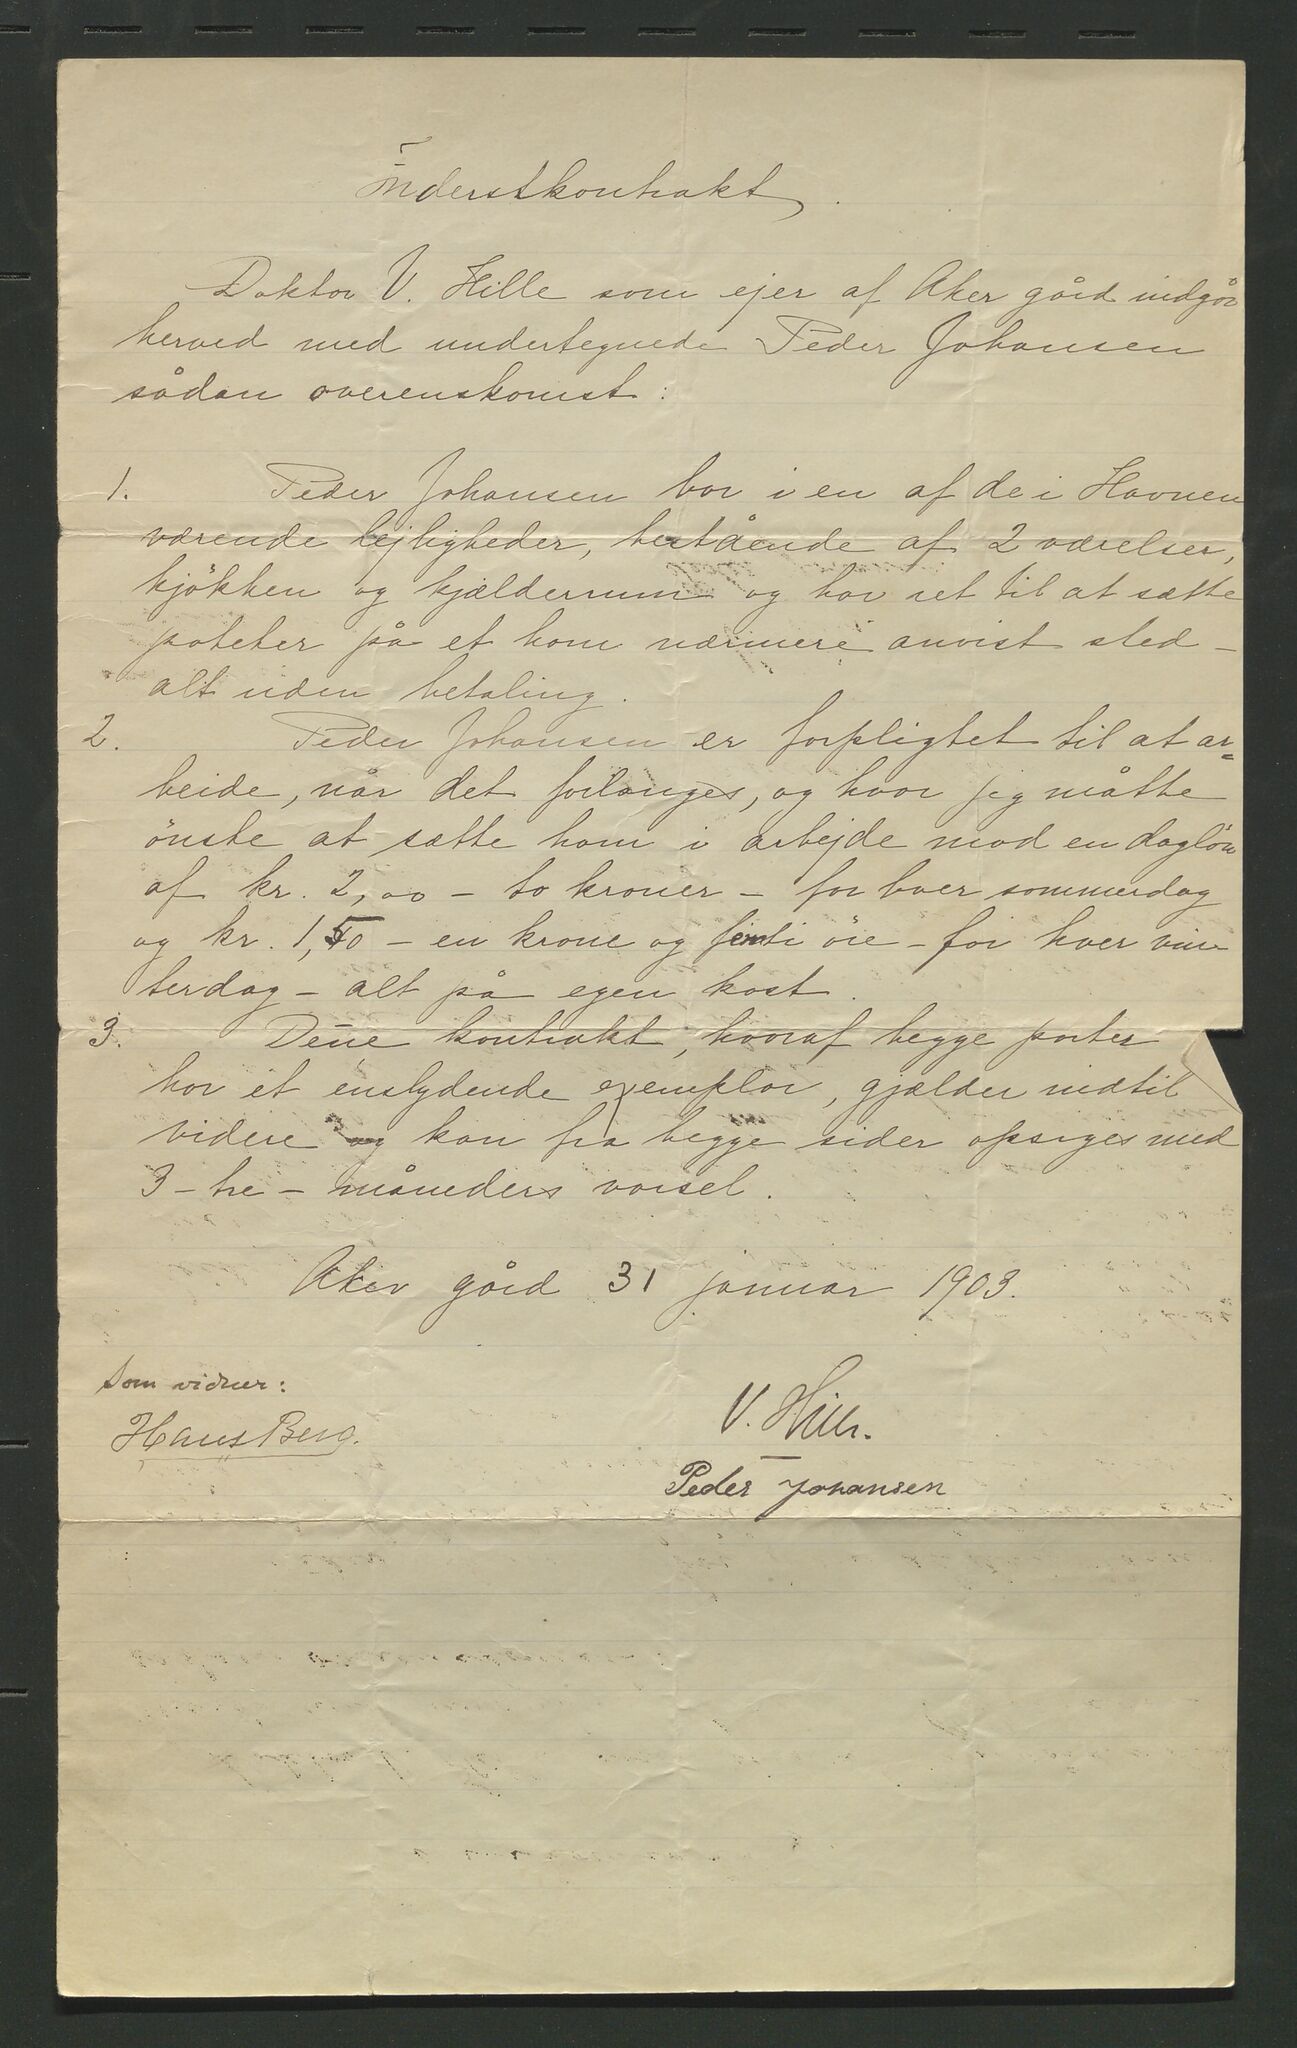 Inderstkontrakt.
Doktor V. Hille som ejer af Aker gård indgår
herved med undertegnede Peder Johansen
sådan overenskomst:
1. Peder Johansen bor i en af de i Havnen
værende lejligheder, bestående af 2 værelser,
kjökken og kjælderrum og har ret til at sætte
poteter på et ham nærmere anvist sted –
alt uden betaling.
2. Peder Johansen er forpligtet til at ar=
beide, når det forlanges, og hvor jeg måtte
önske at sætte ham i arbejde mod en daglön
af kr. 2,00 – to kroner – for hver sommerdag
og kr. 1,50 – en krone og femti öre – for hver vin
terdag – alt på egen kost.
3. Den̄e kontrakt, hvoraf begge parter
har et enslydende exemplar, gjælder indtil
videre og kan fra begge sider opsiges med
3 – tre – måneders varsel.
Aker gård 31 januar 1903.
Som vidner:
Hans Berg.
V. Hille.
Peder Johansen